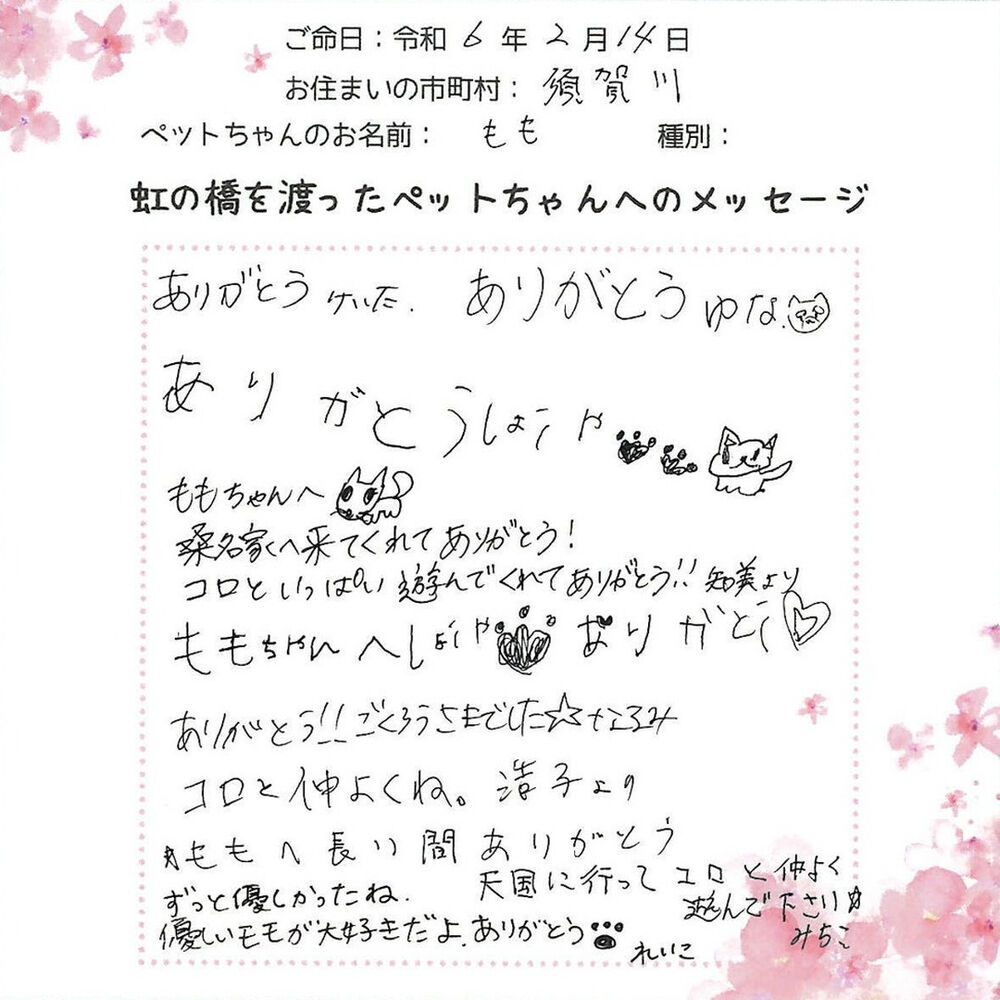 ご命日：令和 6 年 2 月 14 日
お住まいの市町村： 須賀川
ペットちゃんのお名前： もも 種別：
虹の橋を渡ったペットちゃんへのメッセージ
ありがとう けいた. ありがとう ゆな.
ありがとうしょうや
ももちゃんへ
桑名家へ来てくれてありがとう!
コロといっぱい遊んでくれてありがとう!! 知美より
ももちゃんへしょうや ありがとう♡
ありがとう!!ごくろうさまでした☆なるみ
コロと仲よくね。浩子より
☆ももへ長い間ありがとう
天国に行って コロと仲よく
遊んで下さい☆
みちこ
ずっと優しかったね.
優しいモモが大好きだよ.ありがとう
れいこ